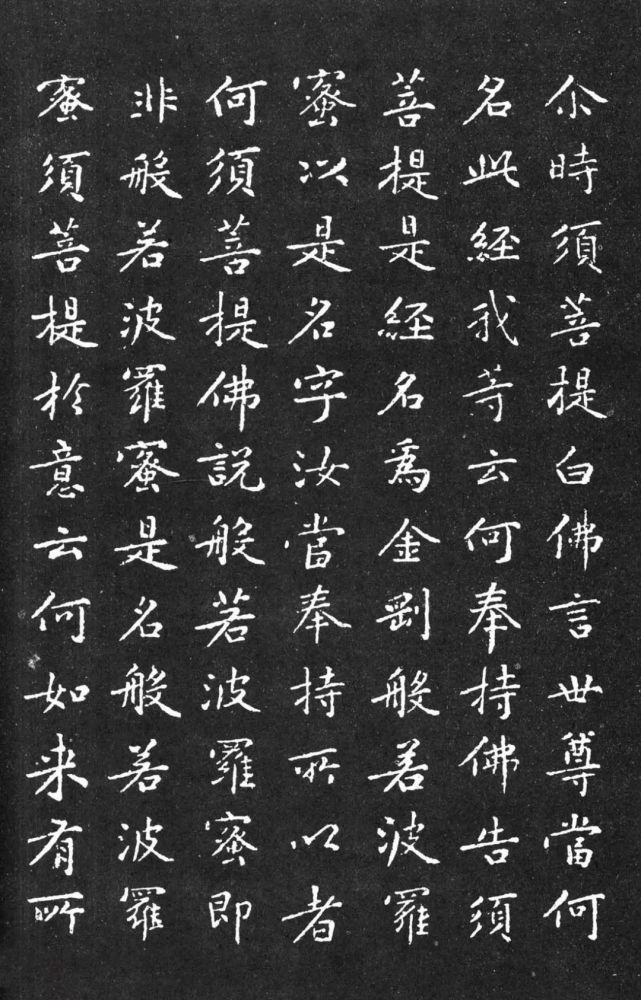 尒時須菩提白佛言世尊當何
名此經我等云何奉持佛告須
菩提是經名為金剛般若波羅
蜜以是名字汝當奉持所以者
何須菩提佛說般若波羅蜜即
非般若波羅蜜是名般若波羅
蜜須菩提於意云何如来有所